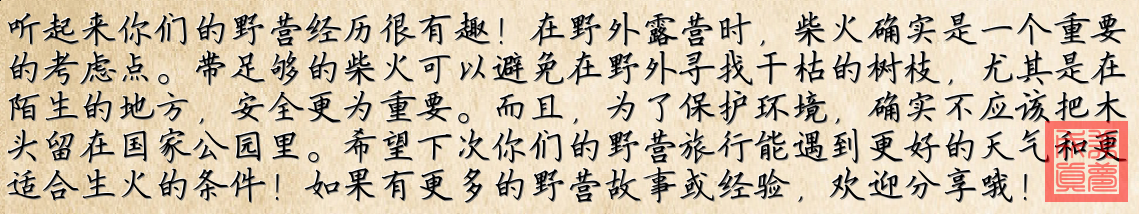 听起来你们的野营经历很有趣！在野外露营时，柴火确实是一个重要
的考虑点。带足够的柴火可以避免在野外寻找干枯的树枝，尤其是在
陌生的地方，安全更为重要。而且，为了保护环境，确实不应该把木
头留在国家公园里。希望下次你们的野营旅行能遇到更好的天气和更
适合生火的条件！如果有更多的野营故事或经验，欢迎分享哦！